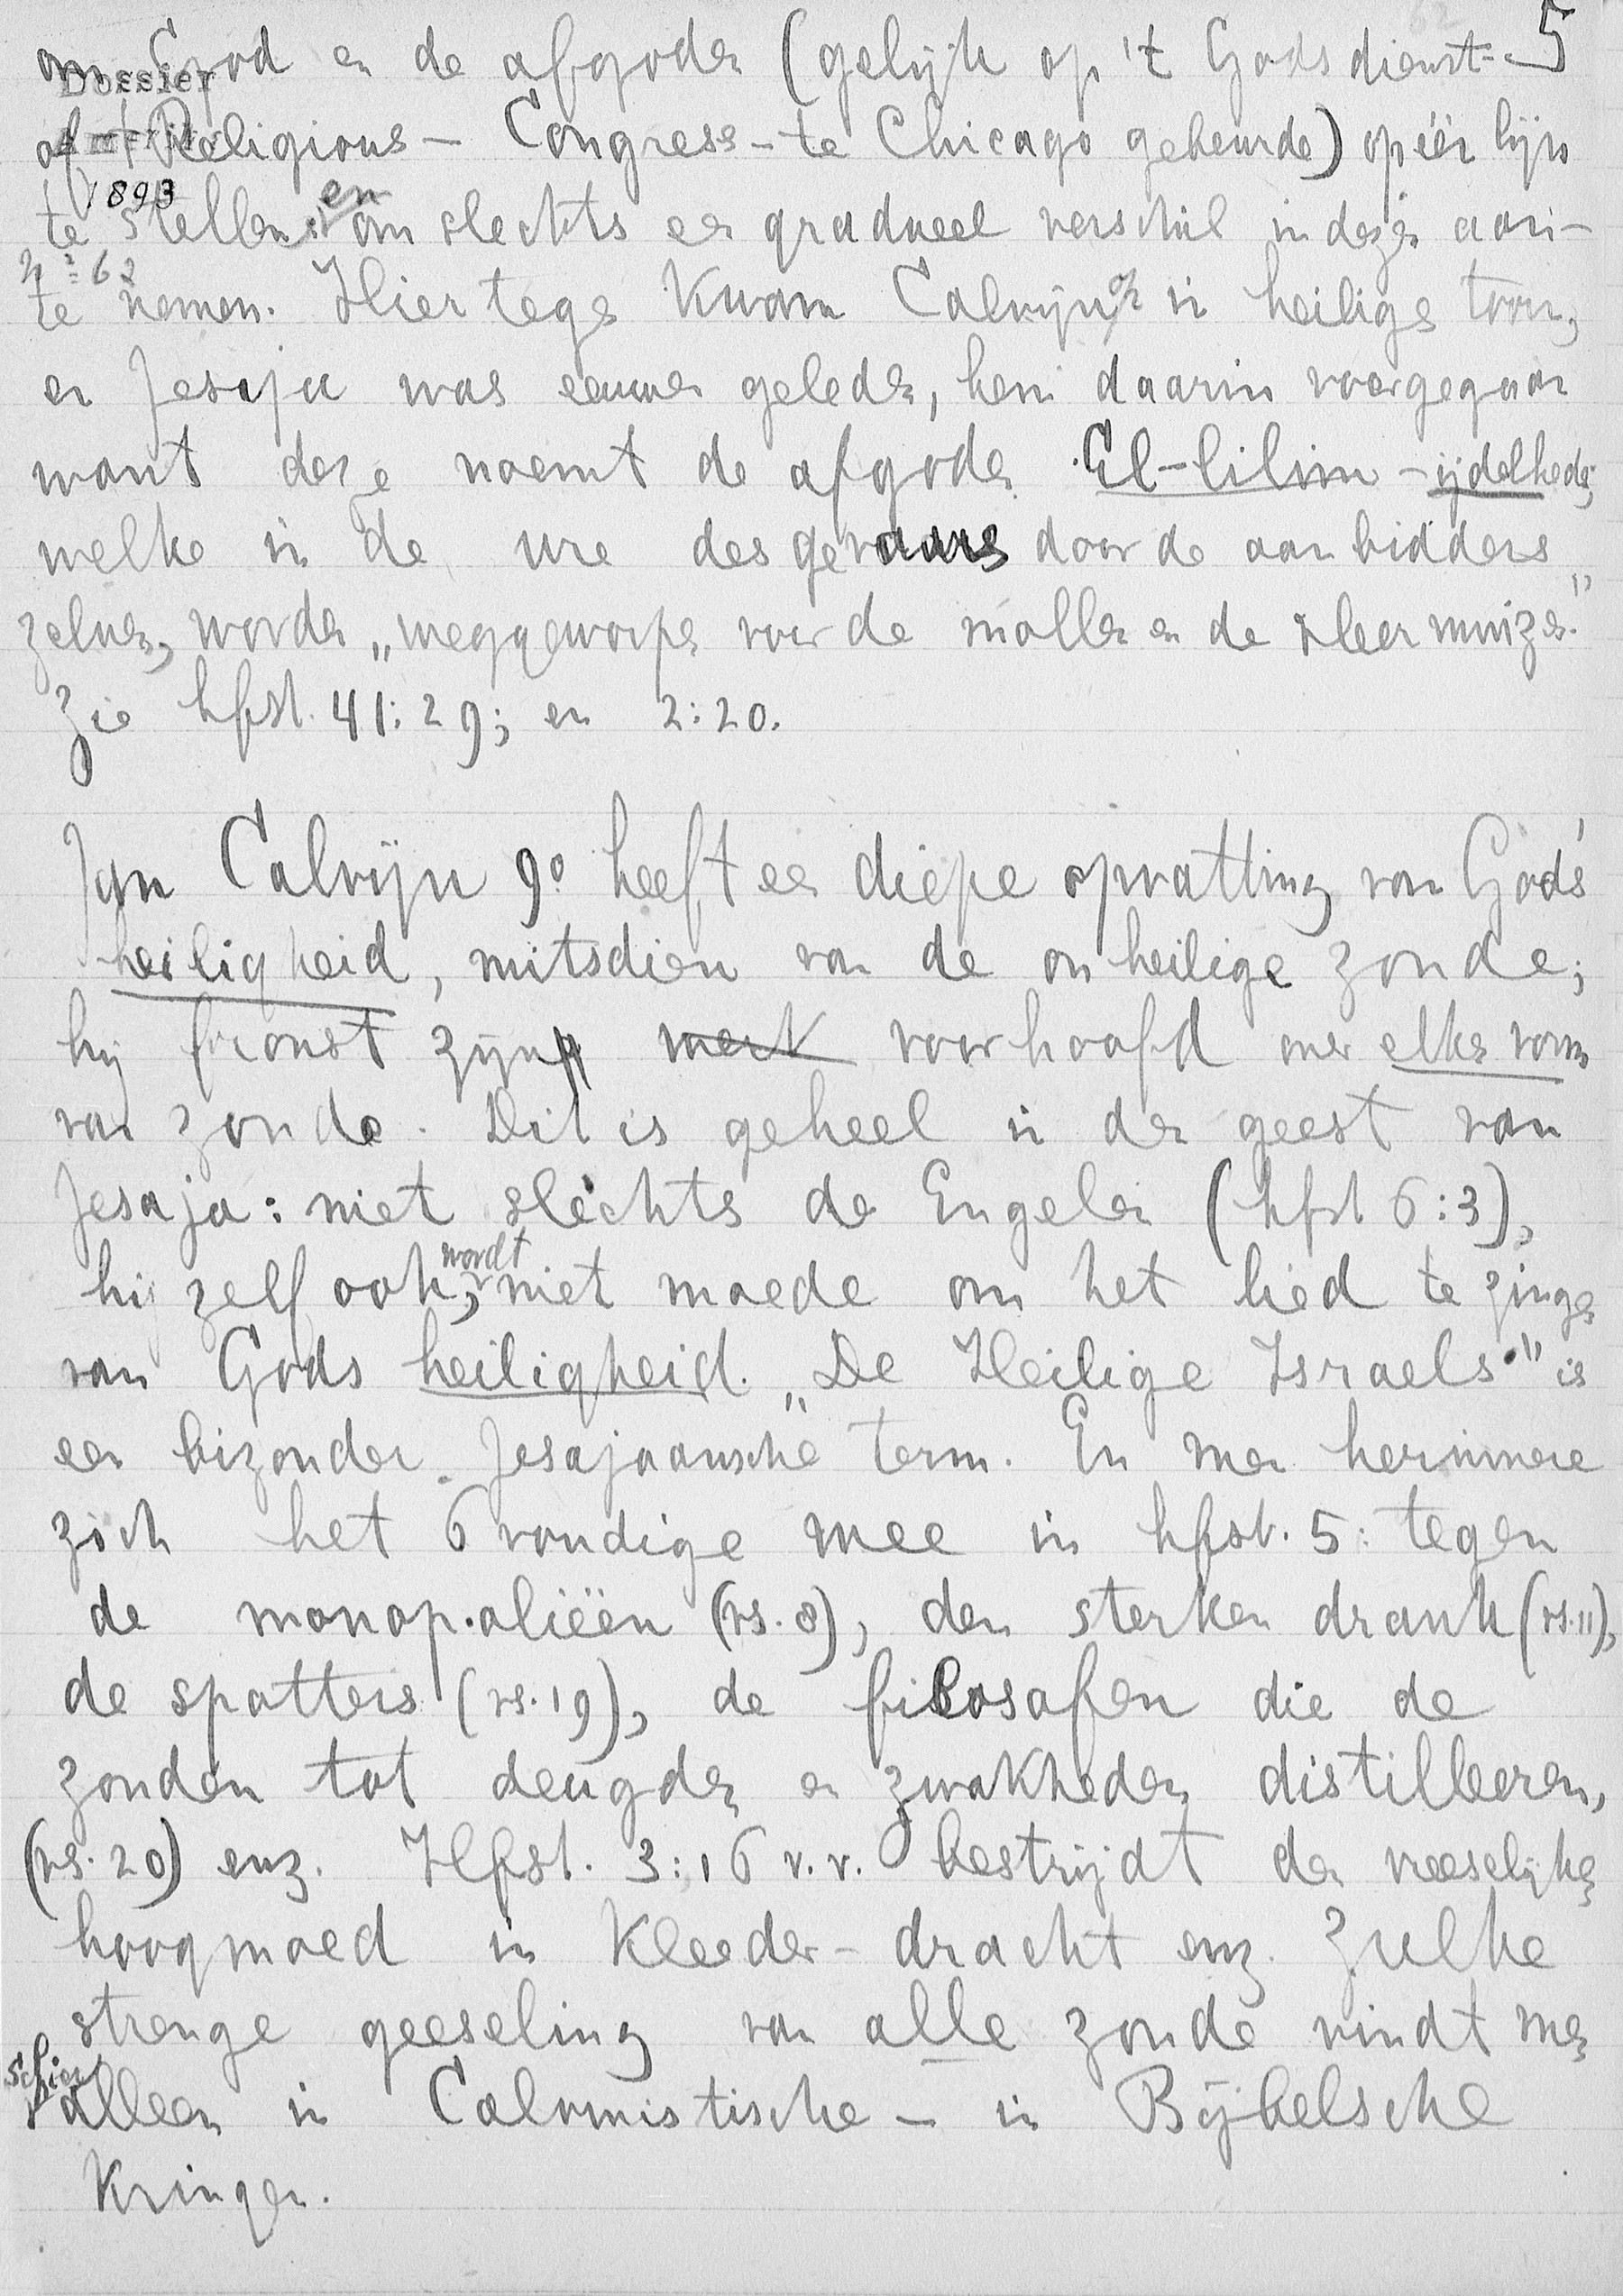 5
om God en de afgoden (gelijk op 't Godsdienst-
Dossier
of Religious - Congress - te Chicago gebeurde) op één lijn
1893
te stellen: en om slechts een gradueel verschil in dezen aan-
No 62
te nemen. Hiertegen kwam Calvijn op in heilige toorn,
en Jesaja was eeuwen geleden, hem daarin voorgegaan
want deze noemt de afgoden El-lilim - ijdelheden,
welke in de ure des gevaars door de aanbidders
zelven, worden „weggeworpen voor de mollen en de vleermuizen."
Zie hfst. 41:29; en 2:20.
Jan Calvijn 9o heeft een diepe opvatting van Gods'
heiligheid, mitsdien van de onheilige zonde;
hij fronst zijn werk voorhoofd over elken vorm
van zonde. Dit is geheel in den geest van
Jesaja: niet slechts de Engelen (hfst 6:3),
hij zelf ook, wordt niet moede om het lied te zingen
van Gods heiligheid. „De Heilige Israels" is
een bizonder Jesajaansche term. En men herinnere
zich het 6 voudige wee in hfst. 5: tegen
de monopoliëen (vs. 8), den sterken drank (vs. 11),
de spotters (vs. 19), de filosofen die de
zonden tot deugden en zwakheden distilleeren,
(vs. 20) enz. Hfst. 3:16 v.v. bestrijdt den vreeselijken
hoogmoed in kleeder-dracht enz. Zulke
strenge geeseling van alle zonde vindt men
schier alleen in Calvinistische - in Bijbelsche
kringen.